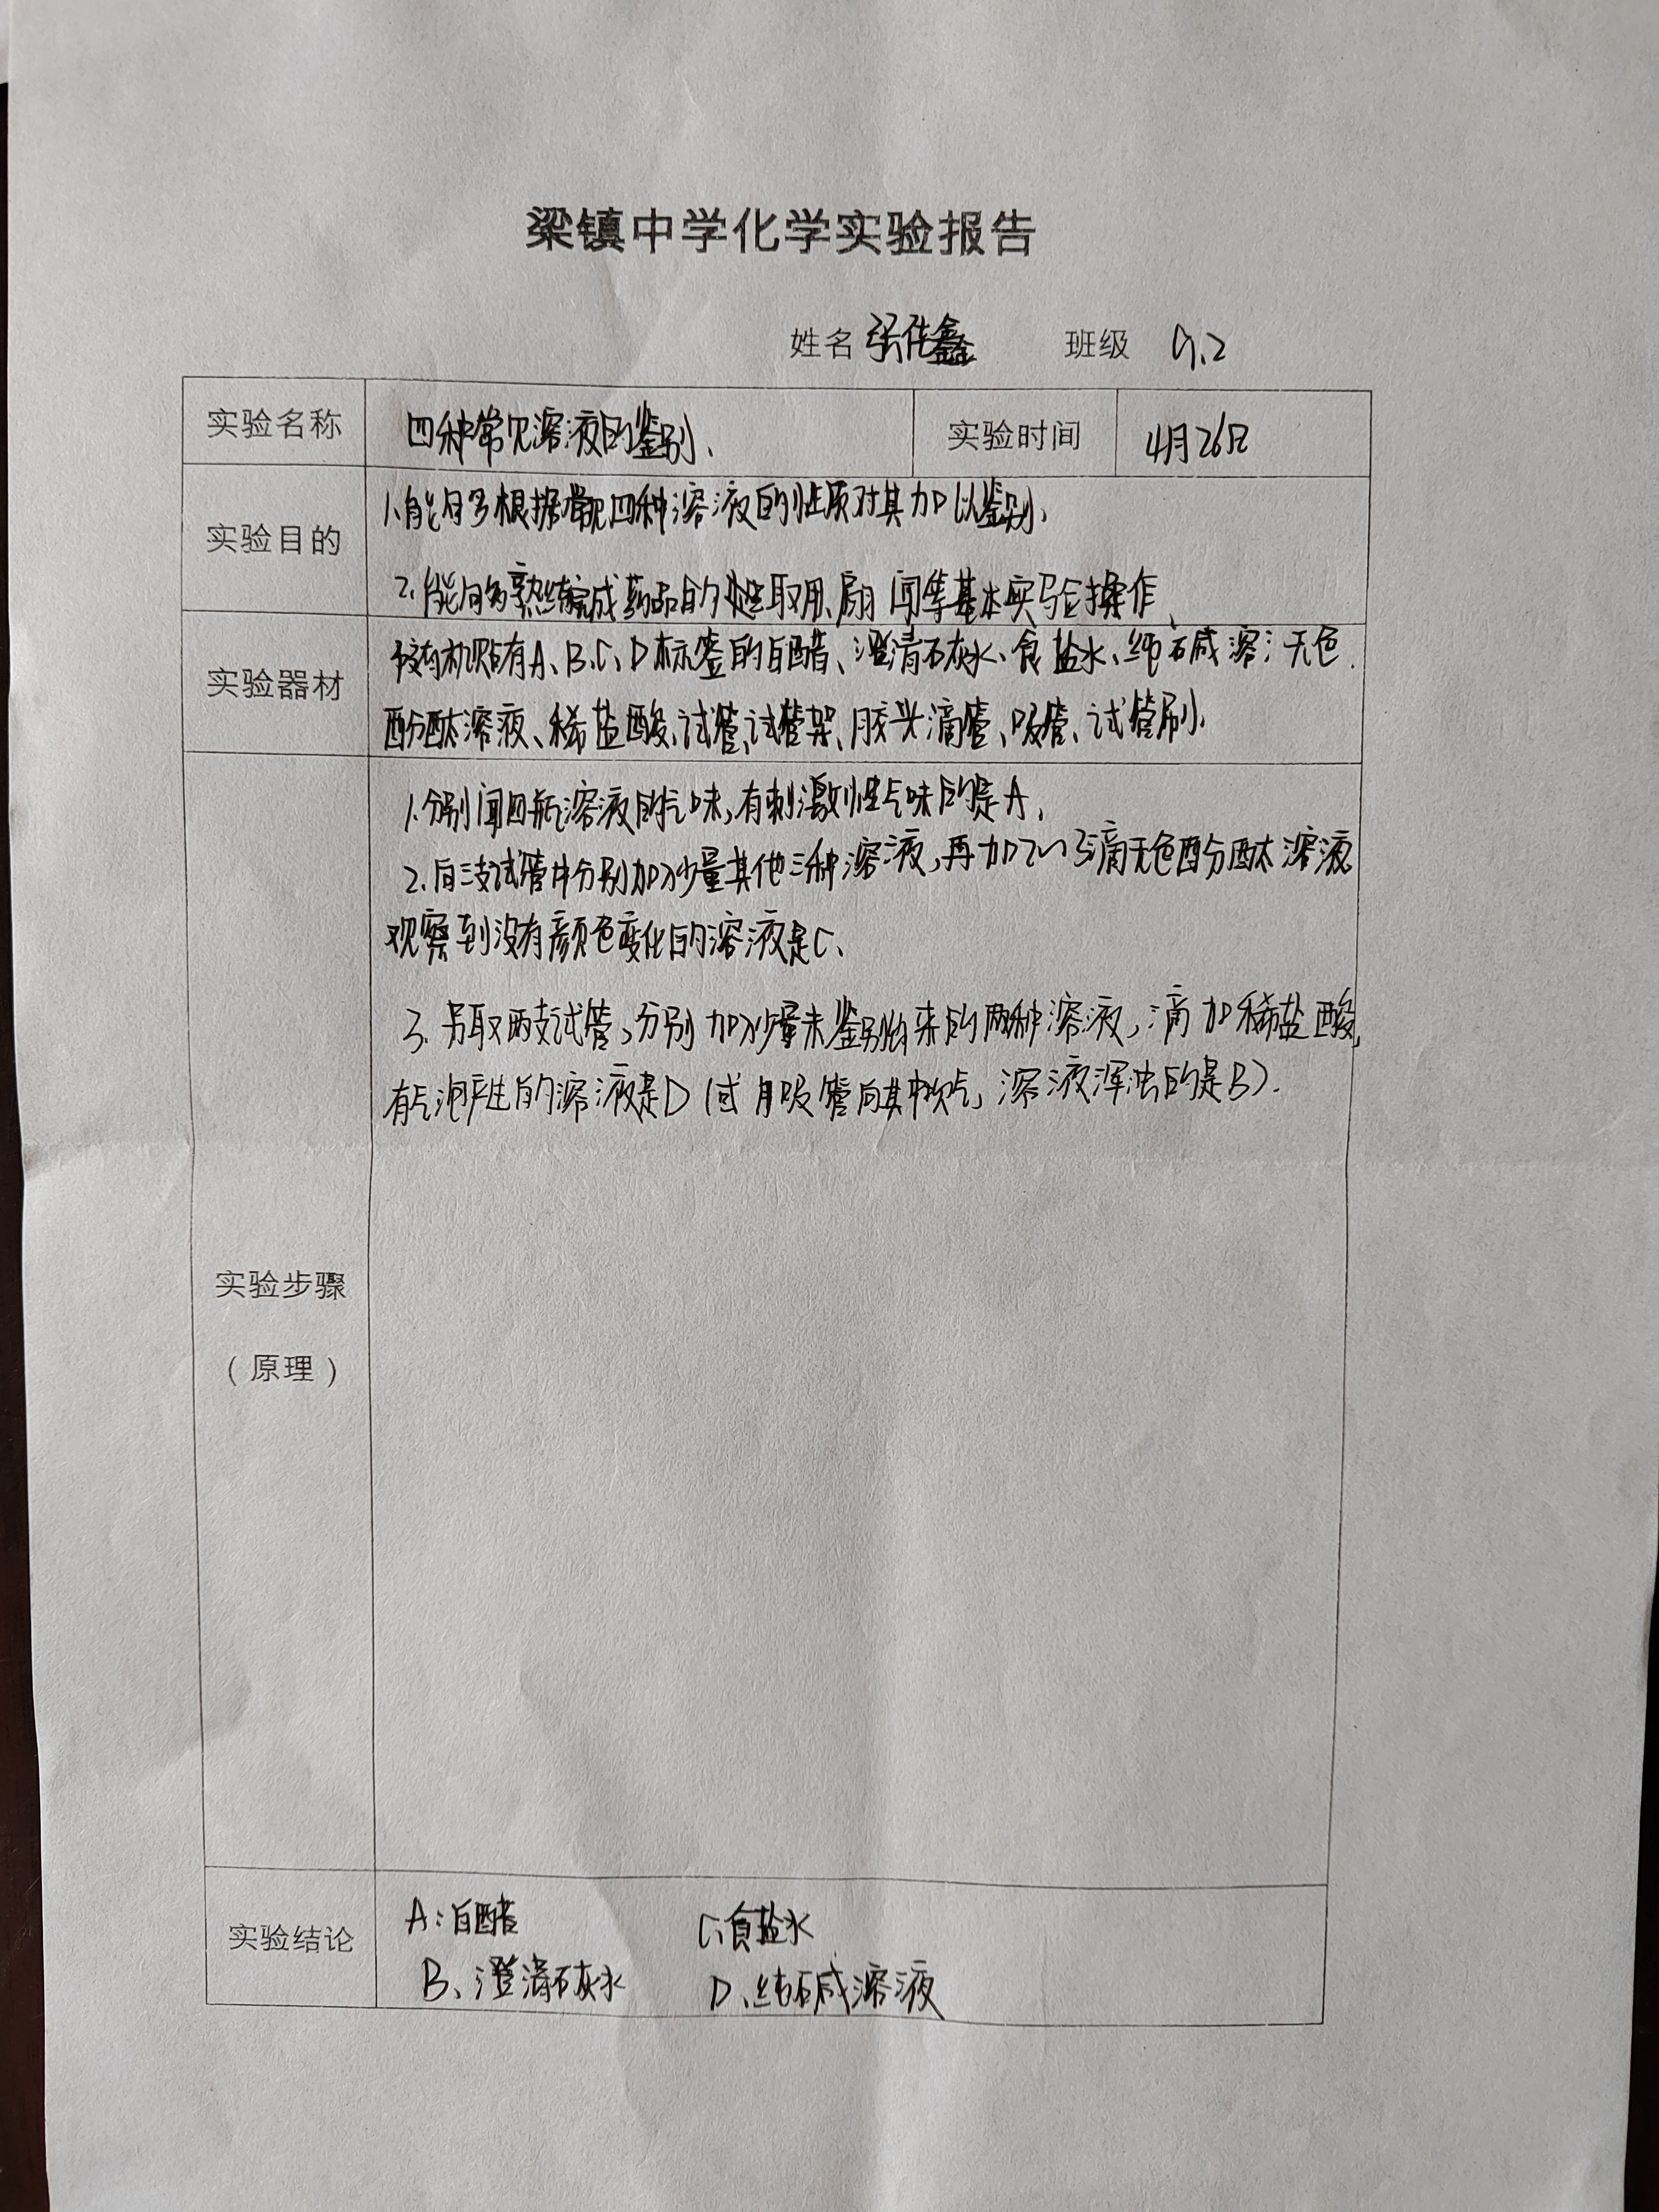 梁镇中学化学实验报告
姓名 张佳鑫 班级 9.2
实验名称 四种常见溶液的鉴别、 实验时间 4月26日
实验目的
1.能够根据常见四种溶液的性质对其加以鉴别、
2.能够熟练完成药品的 取用、扇闻等基本实验操作、
实验器材
贴有A、B、C、D标签的白醋、澄清石灰水、食盐水、纯碱溶;无色
酚酞溶液、稀盐酸、试管、试管架、胶头滴管、吸管、试管刷、
1.分别闻四瓶溶液的气味,有刺激性气味的是A、
2.向三支试管中分别加入少量其他三种溶液,再加2~3滴无色酚酞溶液
观察到没有颜色变化的溶液是C、
3.另取两支试管,分别加入少量未鉴别出来的两种溶液,滴加稀盐酸,
有气泡产生的溶液是D(或用吸管向其中吹气,溶液浑浊的是B).
实验步骤
(原理)
实验结论
A:白醋 C、食盐水
B、澄清石灰水 D、纯碱溶液